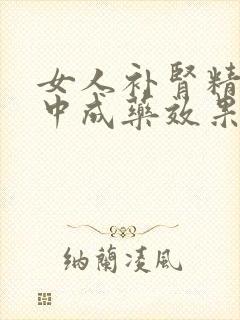 女人补肾精
中成药效果
纳兰凌风